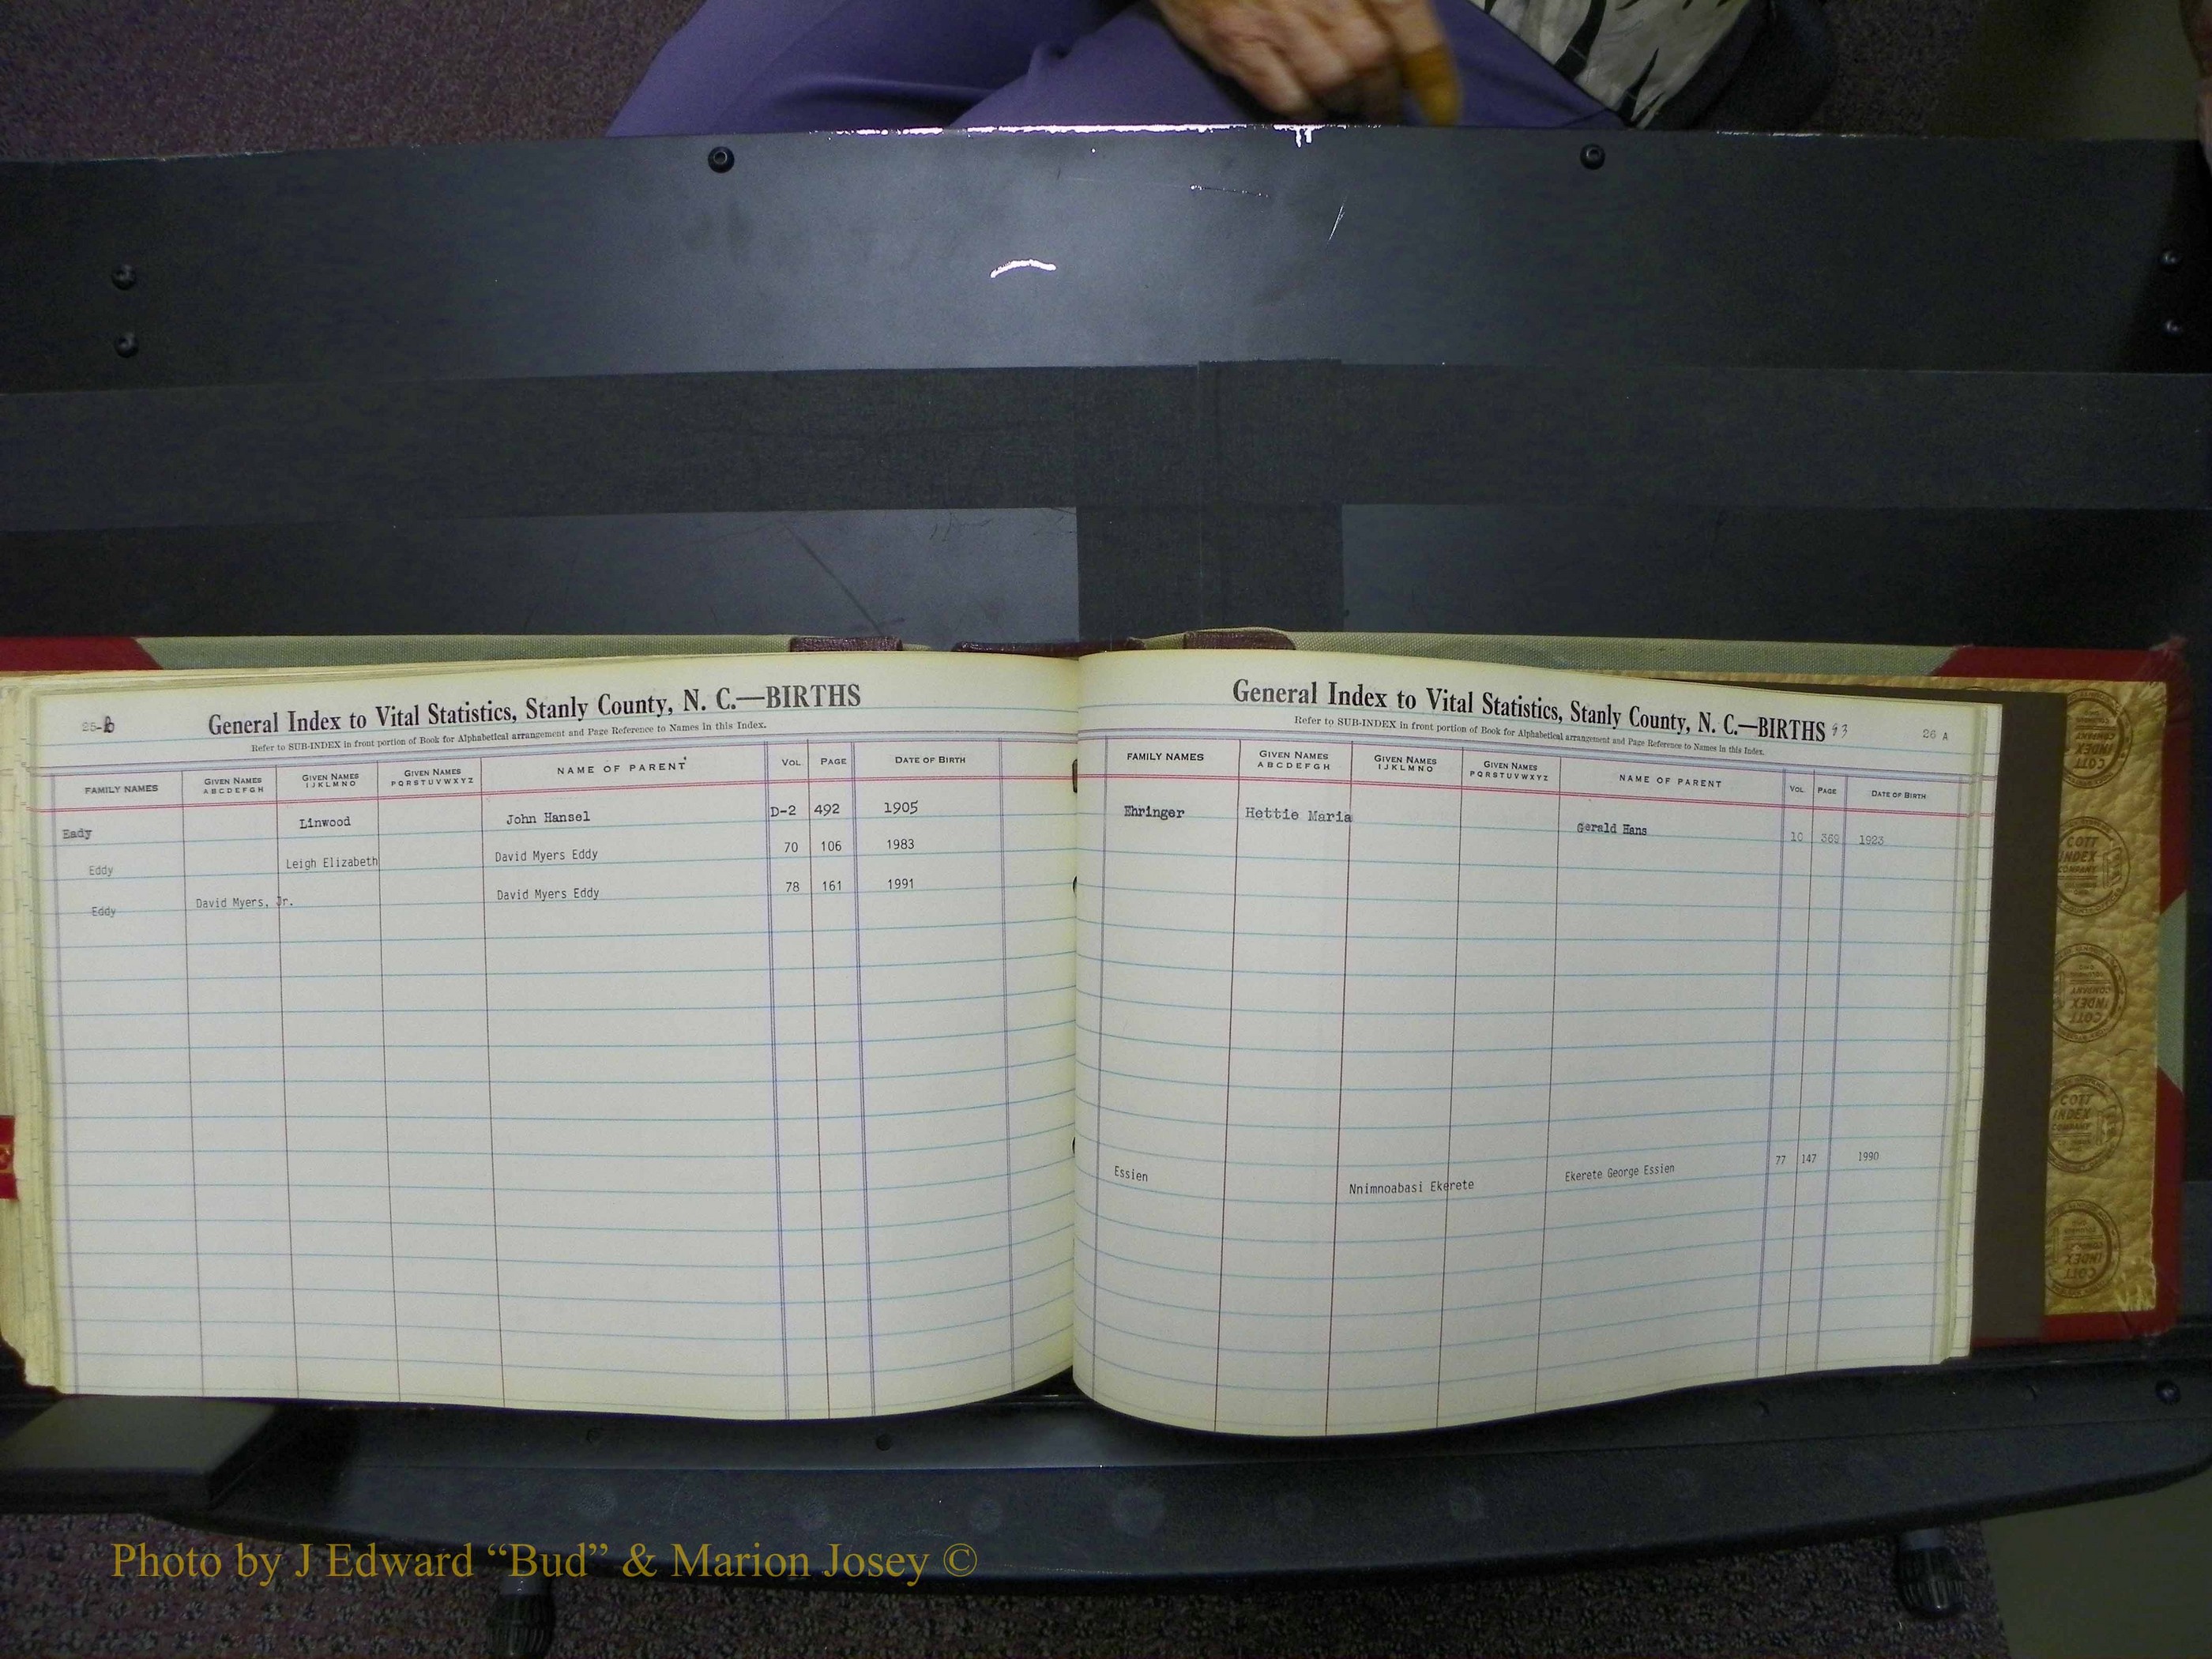 25-b
General Index to Vital Statistics, Stanly County, N. C.—BIRTHS
Refer to SUB-INDEX in front portion of Book for Alphabetical arrangement and Page Reference to Names in this Index.
FAMILY NAMES GIVEN NAMES ABCDEFGH GIVEN NAMES IJKLMNO GIVEN NAMES PQRSTUVWXYZ NAME OF PARENT VOL PAGE DATE OF BIRTH
Eady Linwood John Hansel D-2 492 1905
Eddy Leigh Elizabeth David Myers Eddy 70 106 1983
Eddy David Myers, Jr. David Myers Eddy 78 161 1991
General Index to Vital Statistics, Stanly County, N. C.—BIRTHS 93 26 A
Refer to SUB-INDEX in front portion of Book for Alphabetical arrangement and Page Reference to Names in this Index.
FAMILY NAMES GIVEN NAMES ABCDEFGH GIVEN NAMES IJKLMNO GIVEN NAMES PQRSTUVWXYZ NAME OF PARENT VOL PAGE DATE OF BIRTH
Ehringer Hettie Maria Gerald Hans 10 369 1923
Essien Nnimnoabasi Ekerete Ekerete George Essien 77 147 1990
COTT INDEX COMPANY
COTT INDEX COMPANY
COTT INDEX COMPANY
COTT INDEX COMPANY
COTT INDEX
Photo by J Edward “Bud” & Marion Josey ©